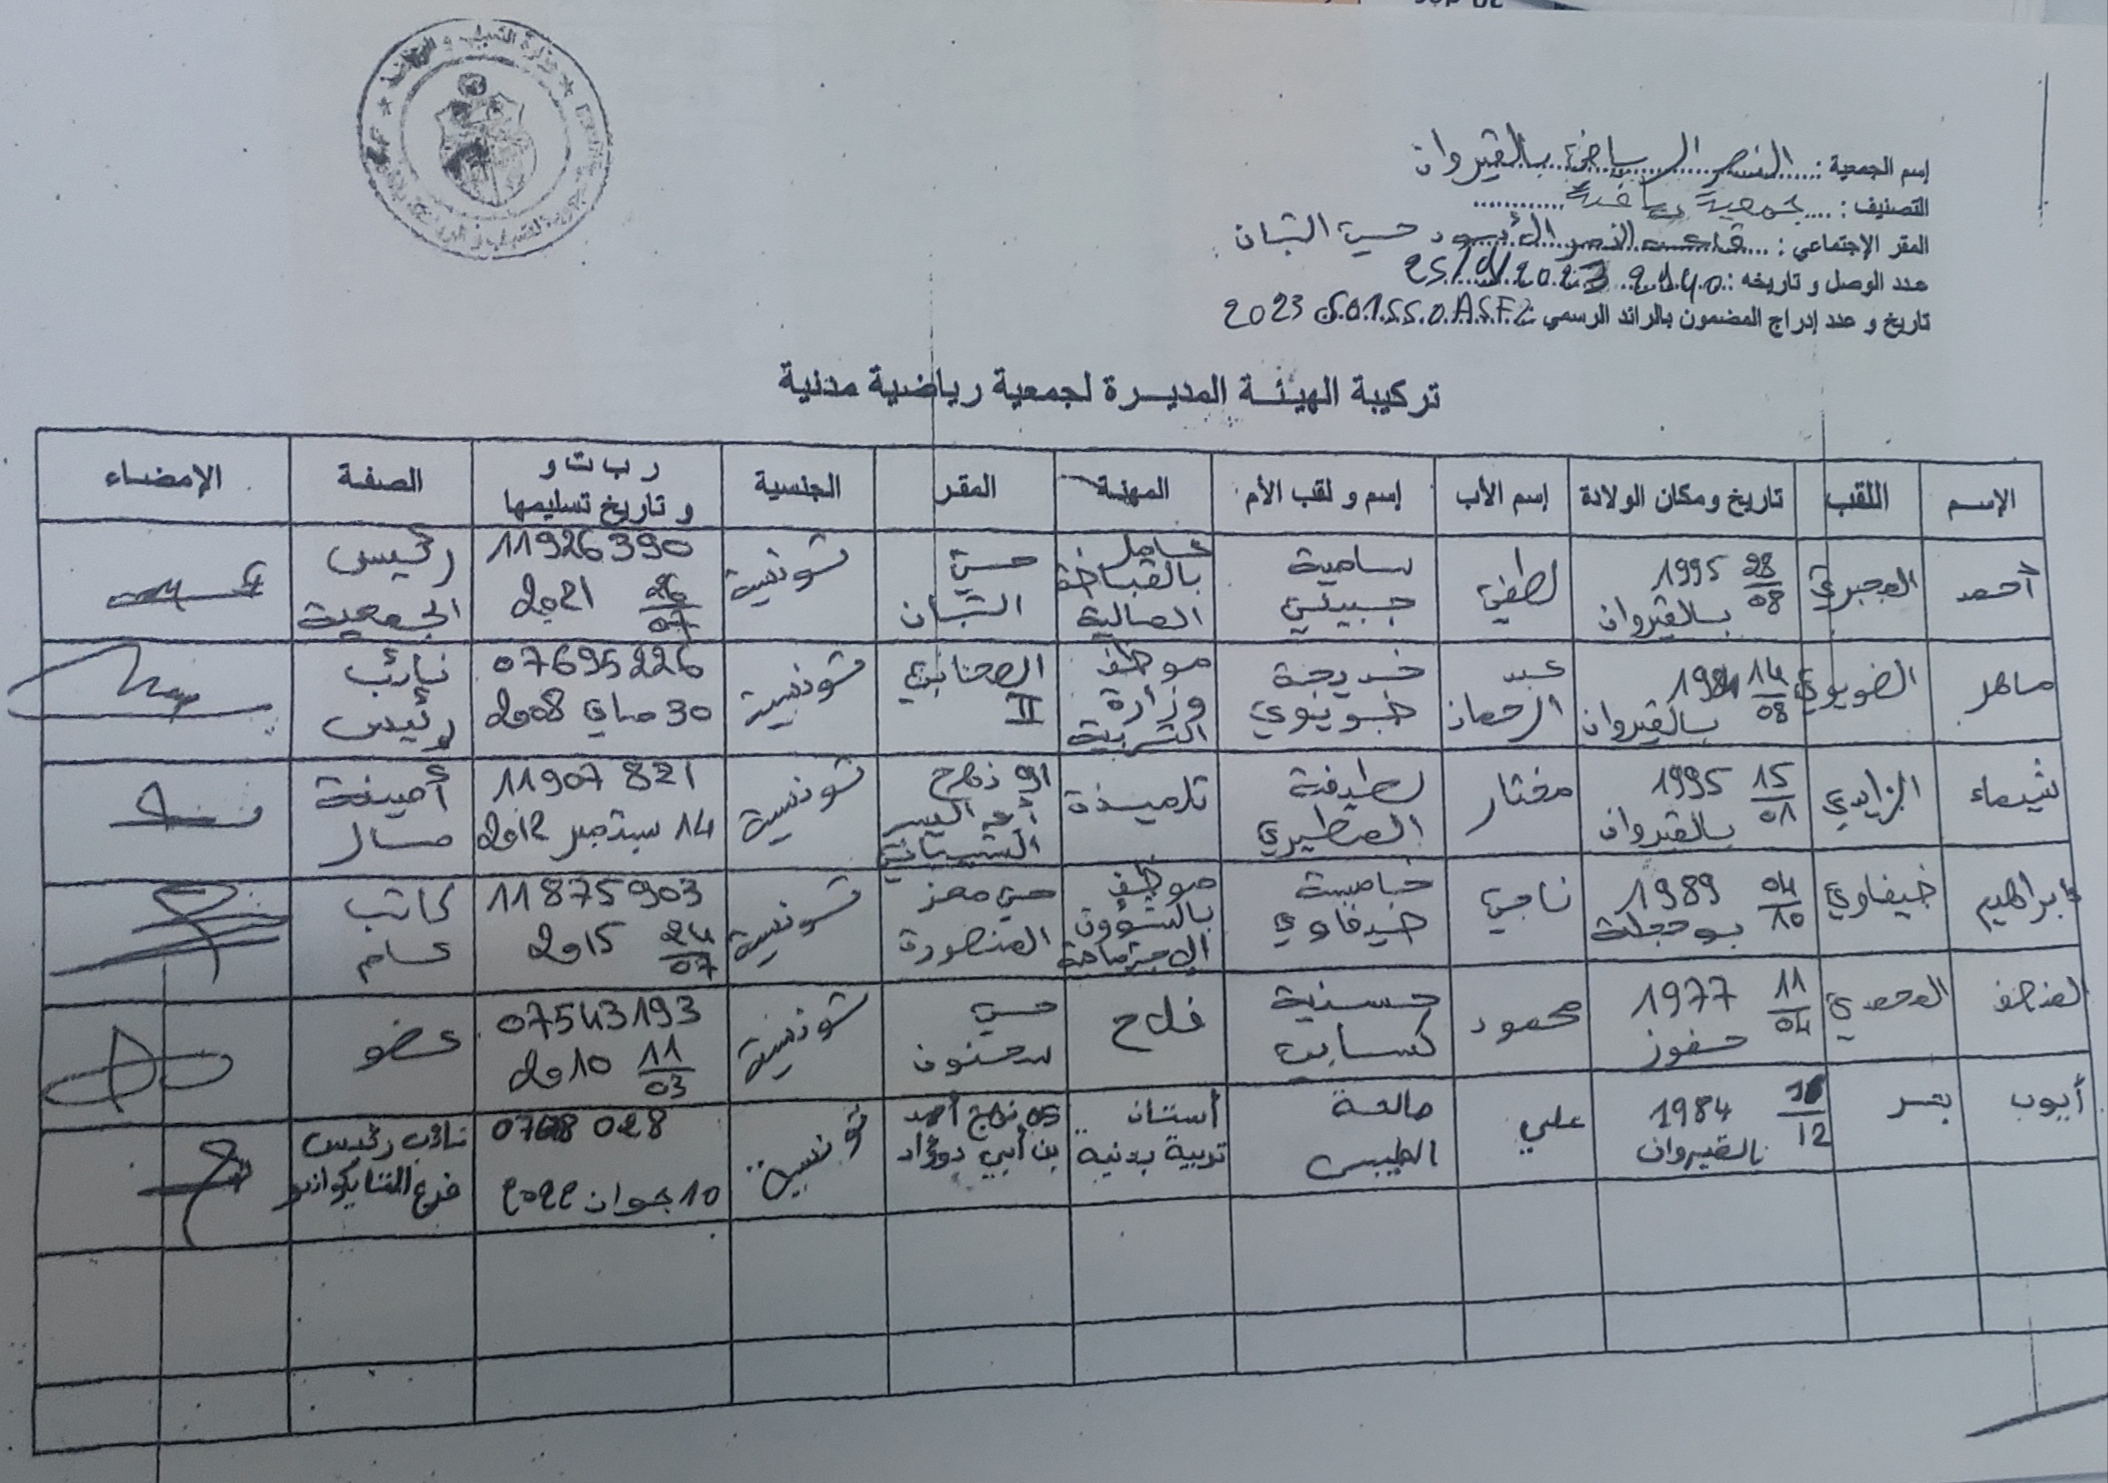 إسم الجمعية : النصر الرياضي بالقيروان
التصنيف : جمعية رياضية
المقر الإجتماعي : قاعة النصر الأسود حي الشبان
عدد الوصل و تاريخه : 2140 2023
تاريخ و عدد إدراج المضمون بالرائد الرسمي 2023
تركيبة الهيئة المديرة لجمعية رياضية مدنية
الإسم اللقب تاريخ ومكان الولادة إسم الأب إسم و لقب الأم المهنة المقر الجنسية ر ب ت و و تاريخ تسليمها الصفة الإمضاء
أحمد 28/08 1995 بالقيروان لطفي سامية عامل بالقباضة المالية حي الشبان تونسية 11926390 26/07 2021 رئيس الجمعية
ماهر الضويوي 14/08 بالقيروان عبد الرحمان خديجة ضويوي موظف وزارة التربية II تونسية 07695226 30 ماي 2008 نائب رئيس
شيماء الزايدي 15/01 1995 بالقيروان مختار لطيفة المطيري تلميذة 91 نهج تونسية 11907821 14 سبتمبر 2012 أمينة مال
إبراهيم ضيفاوي 04/10 1989 بوحجلة ناجي ضيفاوي موظف بالشؤون الاجتماعية حي معز المنصورة تونسية 11875903 24/07 2015 كاتب عام
المنصف المحمدي 11/04 1977 حفوز محمود حسنية فلاح حي سحنون تونسية 07543193 11/03 2010 عضو
أيوب 12 1984 القيروان علي صالحة أستاذ تربية بدنية 05 نهج أحمد بن أبي تونسية 028 10 جوان 2022 نائب رئيس فرع التايكواندو